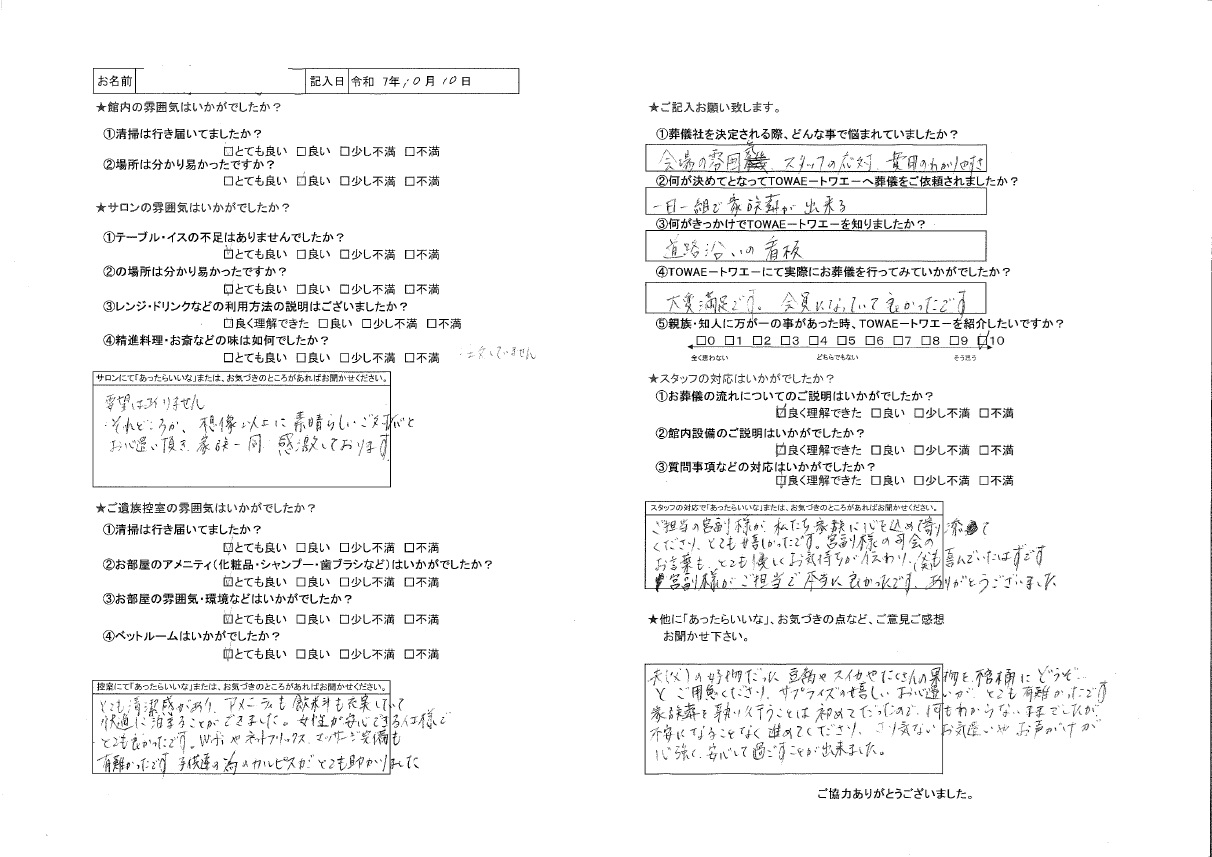 お名前
記入日 令和 7年10月10日
★館内の雰囲気はいかがでしたか？
①清掃は行き届いてましたか？
□とても良い □良い □少し不満 □不満
②場所は分かり易かったですか？
□とても良い □良い □少し不満 □不満
★サロンの雰囲気はいかがでしたか？
①テーブル・イスの不足はありませんでしたか？
□とても良い □良い □少し不満 □不満
②の場所は分かり易かったですか？
□とても良い □良い □少し不満 □不満
③レンジ・ドリンクなどの利用方法の説明はございましたか？
□良く理解できた □良い □少し不満 □不満
④精進料理・お斎などの味は如何でしたか？
□とても良い □良い □少し不満 □不満 ・注文していません
サロンにて「あったらいいな」または、お気づきのところがあればお聞かせください。
要望はありません
それどころか、想像以上に素晴らしいご対応と
お心遣い頂き、家族一同 感激しております
★ご遺族控室の雰囲気はいかがでしたか？
①清掃は行き届いてましたか？
□とても良い □良い □少し不満 □不満
②お部屋のアメニティ（化粧品・シャンプー・歯ブラシなど）はいかがでしたか？
□とても良い □良い □少し不満 □不満
③お部屋の雰囲気・環境などはいかがでしたか？
□とても良い □良い □少し不満 □不満
④ベットルームはいかがでしたか？
□とても良い □良い □少し不満 □不満
控室にて「あったらいいな」または、お気づきのところがあればお聞かせください。
とても清潔感があり、アメニティも飲料も充実していて
快適に泊まることができました。女性が安心できる仕様で
とても良かったです。Wi-Fiやネットフリックス、マッサージ完備も
有難かったです 子供達の為のカルピスがとても助かりました
★ご記入お願い致します。
①葬儀社を決定される際、どんな事で悩まれていましたか？
会場の雰囲気、スタッフの応対、費用のわかりやすさ
②何が決めてとなってTOWAEートワエーへ葬儀をご依頼されましたか？
一日一組で家族葬が出来る
③何がきっかけでTOWAEートワエーを知りましたか？
道路沿いの看板
④TOWAEートワエーにて実際にお葬儀を行ってみていかがでしたか？
大変満足です。会員になっていて良かったです
⑤親族・知人に万が一の事があった時、TOWAEートワエーを紹介したいですか？
□0 □1 □2 □3 □4 □5 □6 □7 □8 □9 □10
全く思わない どちらでもない そう思う
★スタッフの対応はいかがでしたか？
①お葬儀の流れについてのご説明はいかがでしたか？
□良く理解できた □良い □少し不満 □不満
②館内設備のご説明はいかがでしたか？
□良く理解できた □良い □少し不満 □不満
③質問事項などの対応はいかがでしたか？
□良く理解できた □良い □少し不満 □不満
スタッフの対応で「あったらいいな」または、お気づきのところがあればお聞かせください。
ご担当の宮副様が、私たち家族に心を込め寄り添って
くださり、とても嬉しかったです。宮副様の司会の
お言葉も、とても優しくお気持ちが伝わり、父も喜んでいたはずです
宮副様がご担当で本当に良かったです、ありがとうございました
★他に「あったらいいな」、お気づきの点など、ご意見ご感想
お聞かせ下さい。
夫(父)の好物だった豆腐やスイカやたくさんの果物を棺桶にどうぞ
とご用意くださり、サプライズの嬉しいお心遣いが、とても有難かったです
家族葬を執り行うことは初めてだったので、何もわからないままでしたが
不安になることなく進めてくださり、さり気ないお気遣いやお声がけが
心強く、安心して過ごすことが出来ました。
ご協力ありがとうございました。